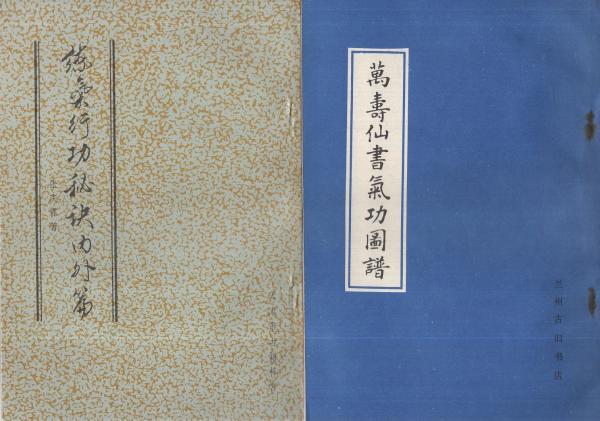 练气行功秘诀内外篇
萬壽仙書氣功圖譜
兰州古旧书店